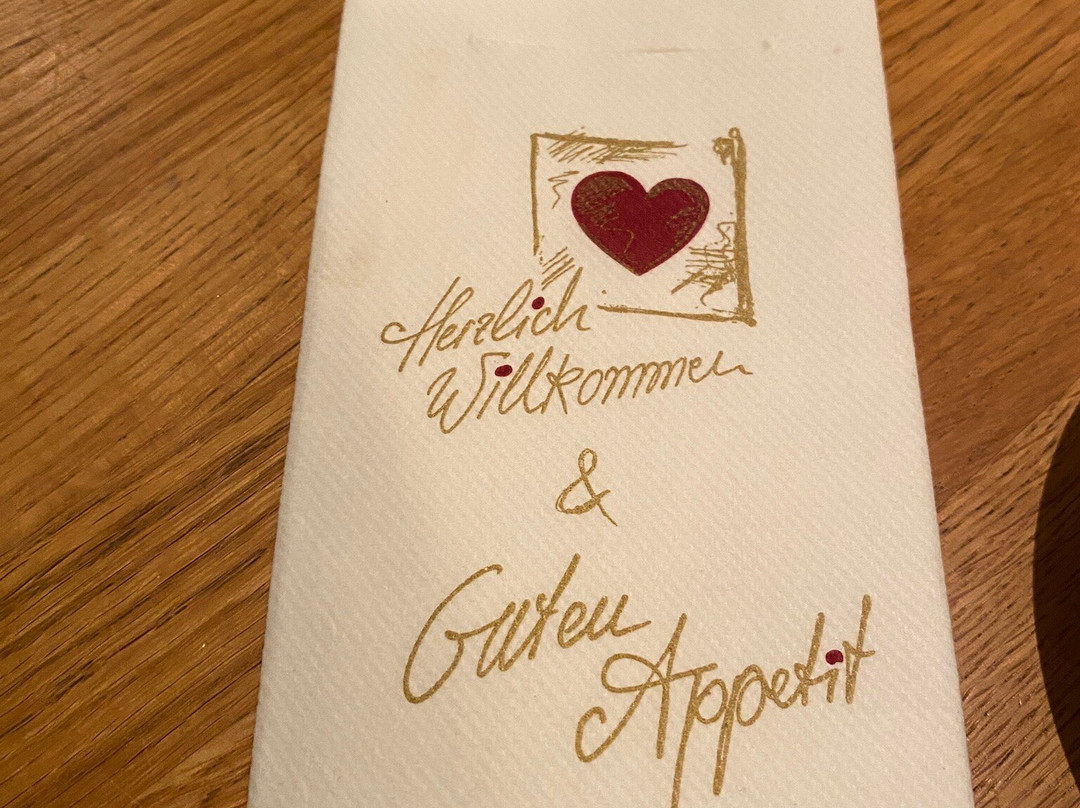 Herzlich
Willkommen
&
Guten
Appetit